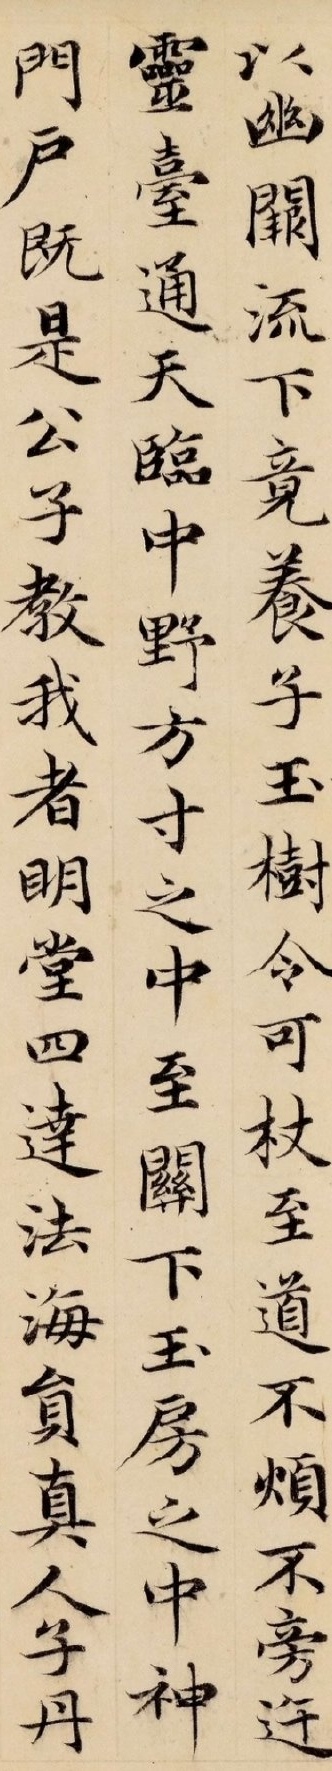 以幽闕流下竟養子玉樹令可杖至道不煩不旁迕
靈臺通天臨中野方寸之中至關下玉房之中神
門戶既是公子教我者明堂四達法海員真人子丹